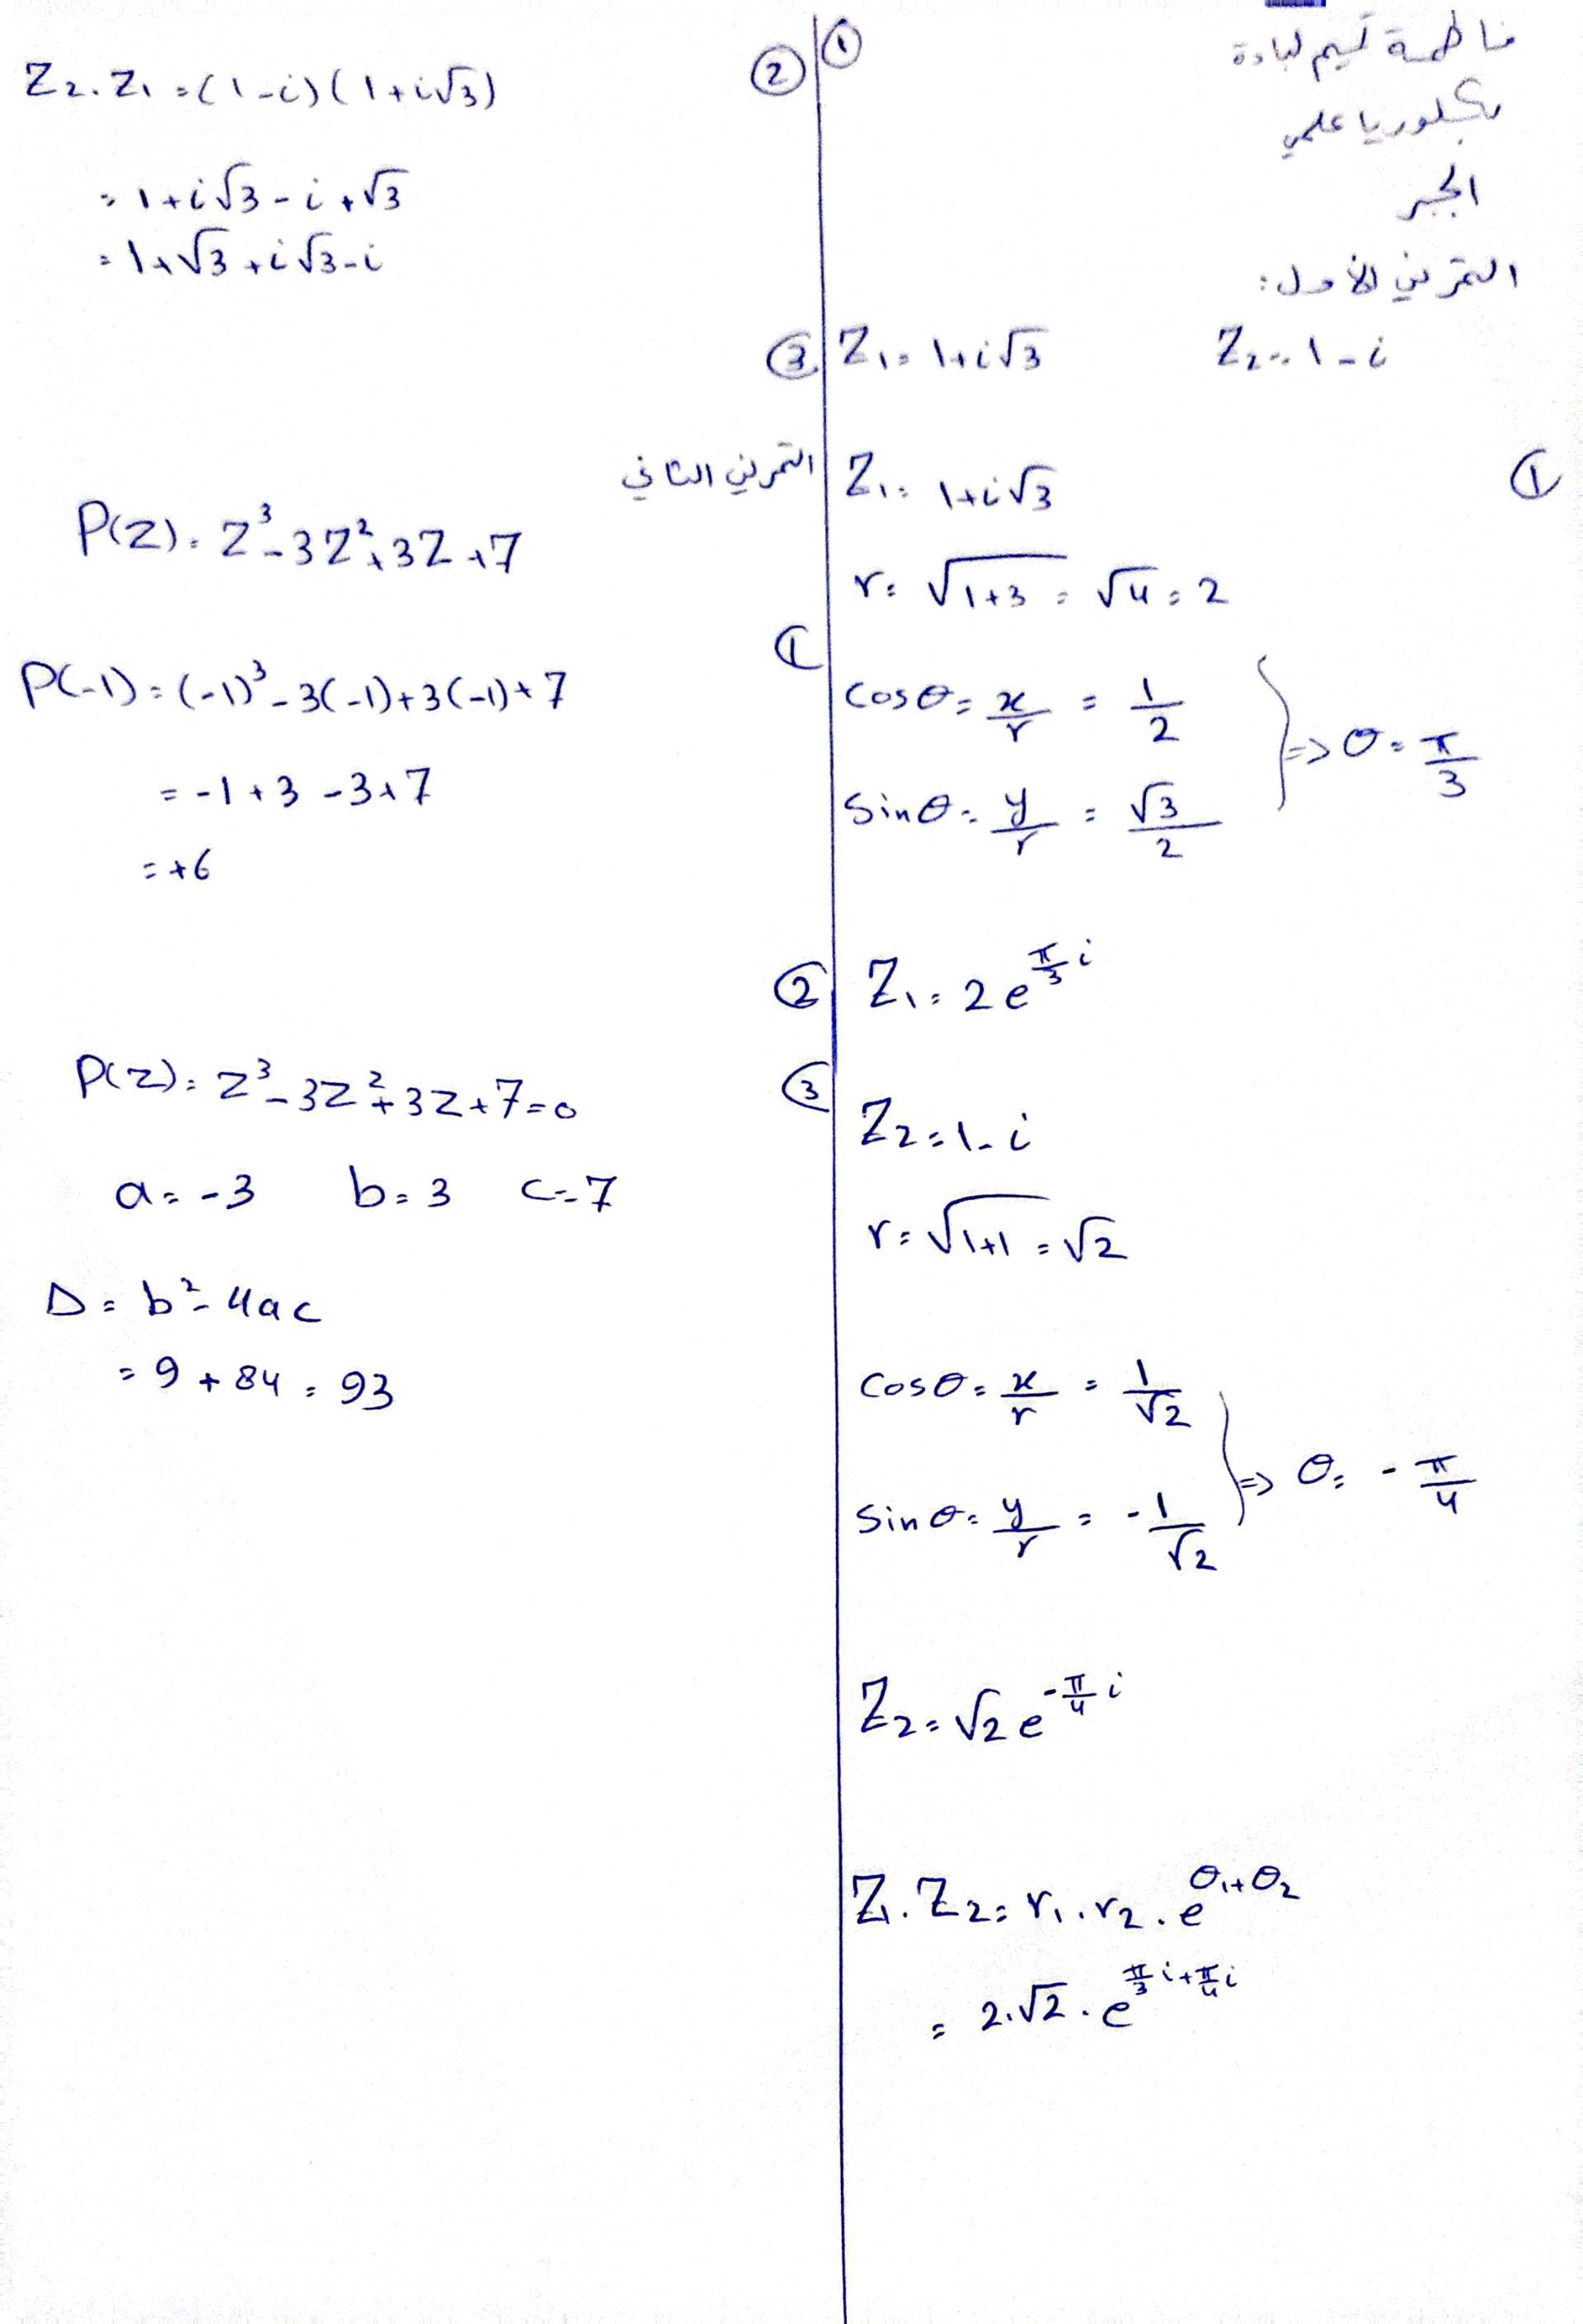 ①
فاطمة تسيم لبادة
بكلوريا علمي
الجبر
التمرين الأول:
Z₁ = 1+i√3 Z₂ = 1-i
①
Z₁ = 1+i√3
r = √(1+3) = √4 = 2
cosθ = x/r = 1/2
sinθ = y/r = √3/2
} => θ = π/3
Z₁ = 2e^(π/3 i)
Z₂ = 1-i
r = √(1+1) = √2
cosθ = x/r = 1/√2
sinθ = y/r = -1/√2
} => θ = -π/4
Z₂ = √2 e^(-π/4 i)
Z₁.Z₂ = r₁.r₂.e^(θ₁+θ₂)
= 2.√2.e^(π/3 i+π/4 i)
②
Z₂.Z₁ = (1-i)(1+i√3)
= 1+i√3-i+√3
= 1+√3+i√3-i
③
التمرين الثاني
P(Z) = Z³-3Z²+3Z+7
①
P(-1) = (-1)³-3(-1)+3(-1)+7
= -1+3-3+7
= +6
②
③
P(Z) = Z³-3Z²+3Z+7=0
a = -3 b = 3 c = 7
Δ = b²-4ac
= 9+84 = 93